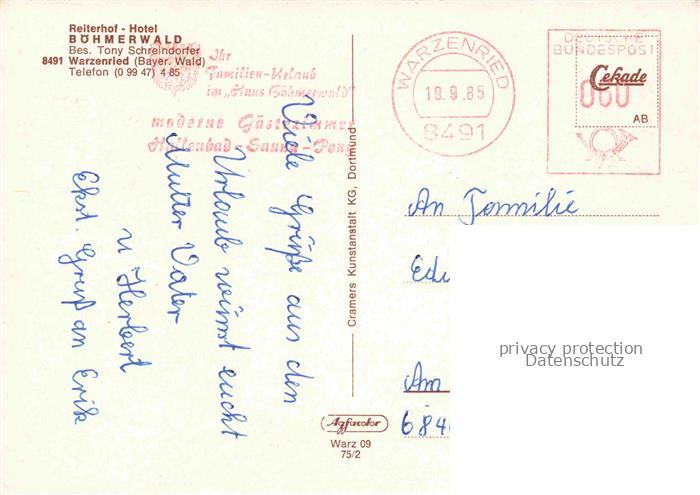 Reiterhof - Hotel
BÖHMERWALD
Bes. Tony Schreindorfer
8491 Warzenried (Bayer. Wald)
Telefon (0 99 47) 4 85
Ihr
Familien-Urlaub
im „Haus Böhmerwald"
moderne Gästezimmer
Hallenbad - Sauna - Pony
WARZENRIED
19.9.85
8491
DEUTSCHE
BUNDESPOST
060
Cekade
AB
Viele Grüße aus den
Urlaub wünst eucht
Mutter Vater
u Herbert
Ekst. Gruß an Erik
Cramers Kunstanstalt KG, Dortmund
An Familie
Edu
Am
684
privacy protection
Datenschutz
Agfacolor
Warz 09
75/2